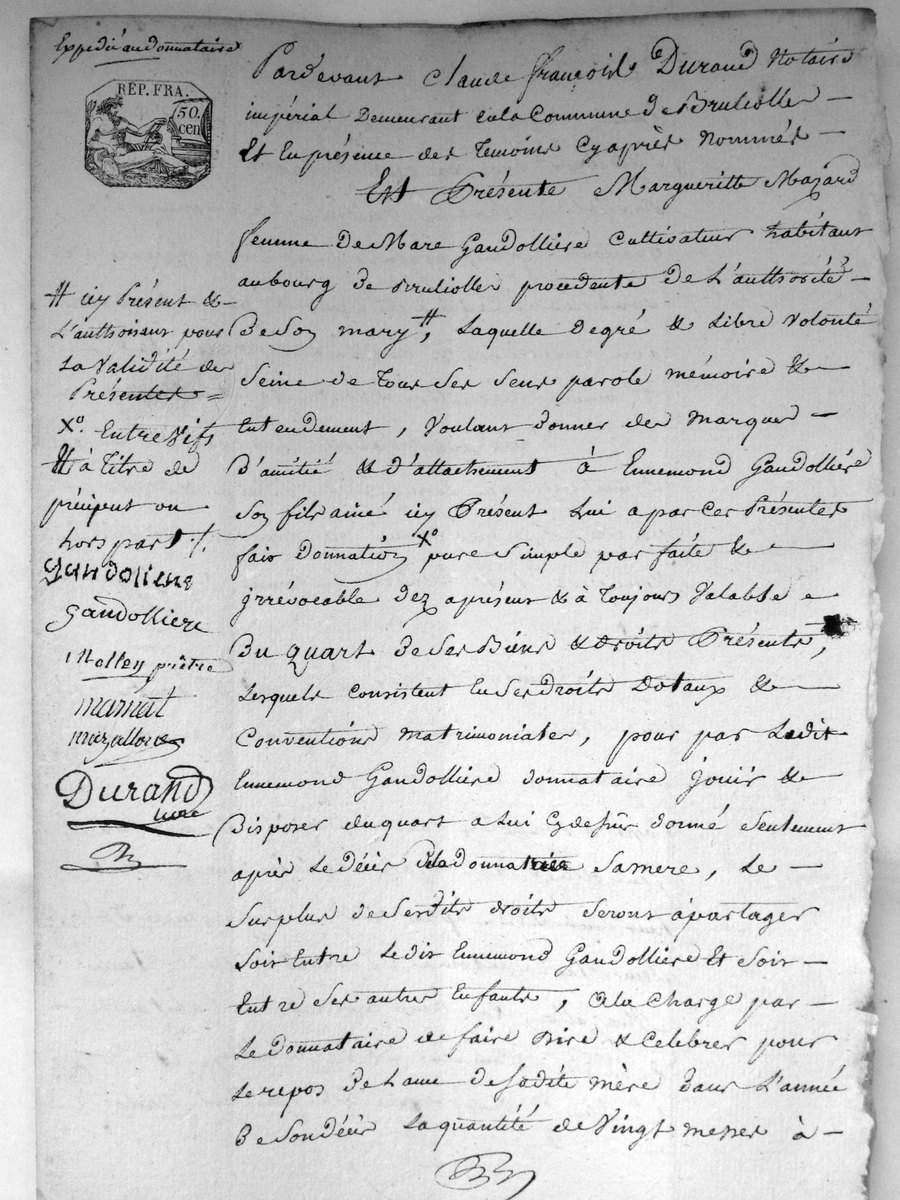 Expédié au donnataire
REP. FRA.
50.
cen
Pardevant Claude François Durand Notaire
impérial Demeurant en la Commune de Brullioles –
Et en présence des Temoins Cyaprès Nommés –
Est Présente Margueritte Mazard
femme De Marc Gandollière Cultivateur habitant
au bourg de Brullioles procedente de L'authorité –
De Son mary #, Laquelle degré & Libre Volonté
Seine de Tous Ses Sens parole mémoire &
Entendement, Voulant donner des marques –
D'amitié & d'attachement à Ennemond Gandollière
Son fils ainé icy Présent Lui a par Ces Présentes
fait Donnation Xº pure Simple parfaite & –
irrévocable dez aprésent & à Toujours Valable
Du quart De Ses Biens & droits Présents,
Lesquels Consistent En Ses Droits Dotaux & –
Conventions Matrimoniales, pour par Ledit
Ennemond Gandollière donnataire jouir & –
Disposer du quart a Lui Cy dessus donné Seulement
après Le Décès De la donnatrice Sa mere, Le –
Surplus de Sesdits droits Seront à partager
Soit Entre Ledit Ennemond Gandollière Et Soit –
Entre Ses autres Enfants, A la Charge par –
Le Donnataire de faire Dire & Celebrer pour
Le repos De L'ame de Sadite mère Dans L'année
De Son décès La quantité de Vingt messes à –
# icy Présent &
L'authorisant pour
La Validité des
Présentes =
Xº. Entre Vifs
# à Titre de
préciput ou
hors part ./.
Gandollière
Gandollière
prêtre
mamat
Durand
Nore